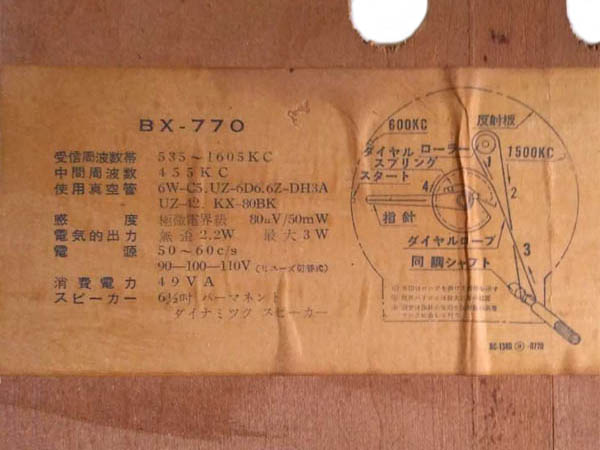 BX-770
受信周波数帯 535~1605KC
中間周波数 455KC
使用真空管 6W-C5.UZ-6D6.6Z-DH3A
UZ-42. KX-80BK
感度 極微電界級 80μV/50mW
電気的出力 無歪2.2W 最大3W
電源 50~60c/s
90-100-110V (ヒューズ切替式)
消費電力 49VA
スピーカー 6½吋 パーマネント
ダイナミック スピーカー
600KC
反射板
ダイヤル ローラー
1500KC
スプリング
スタート
1
2
4
指針
3
ダイヤルロープ
同調シャフト